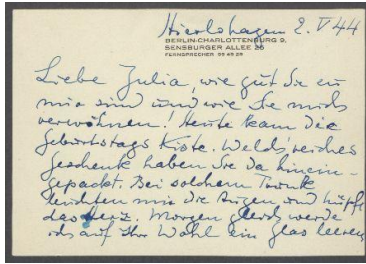 Hierlshagen 2. V 44
BERLIN-CHARLOTTENBURG 9,
SENSBURGER ALLEE 26
FERNSPRECHER 99 49 29
Liebe Julia, wie gut Sie zu
mir sind und wie Sie mich
verwöhnen! Heute kam die
Geburtstags Kiste. Welch reiches
Geschenk haben Sie da hinein-
gepackt. Bei solchem Trunk
leuchten mir die Augen und hüpft
das Herz. Morgen gleich werde
ich auf Ihr Wohl ein Glas leeren